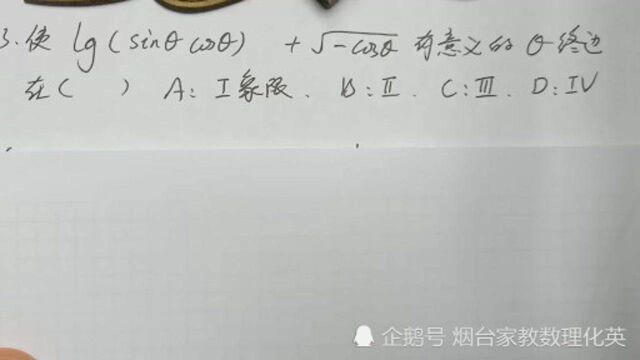 3.使 lg(sinθ cosθ) +√-cosθ 有意义的 θ 终边
在( ) A:I象限. B:II. C:III. D:IV
企鹅号 烟台家教数理化英